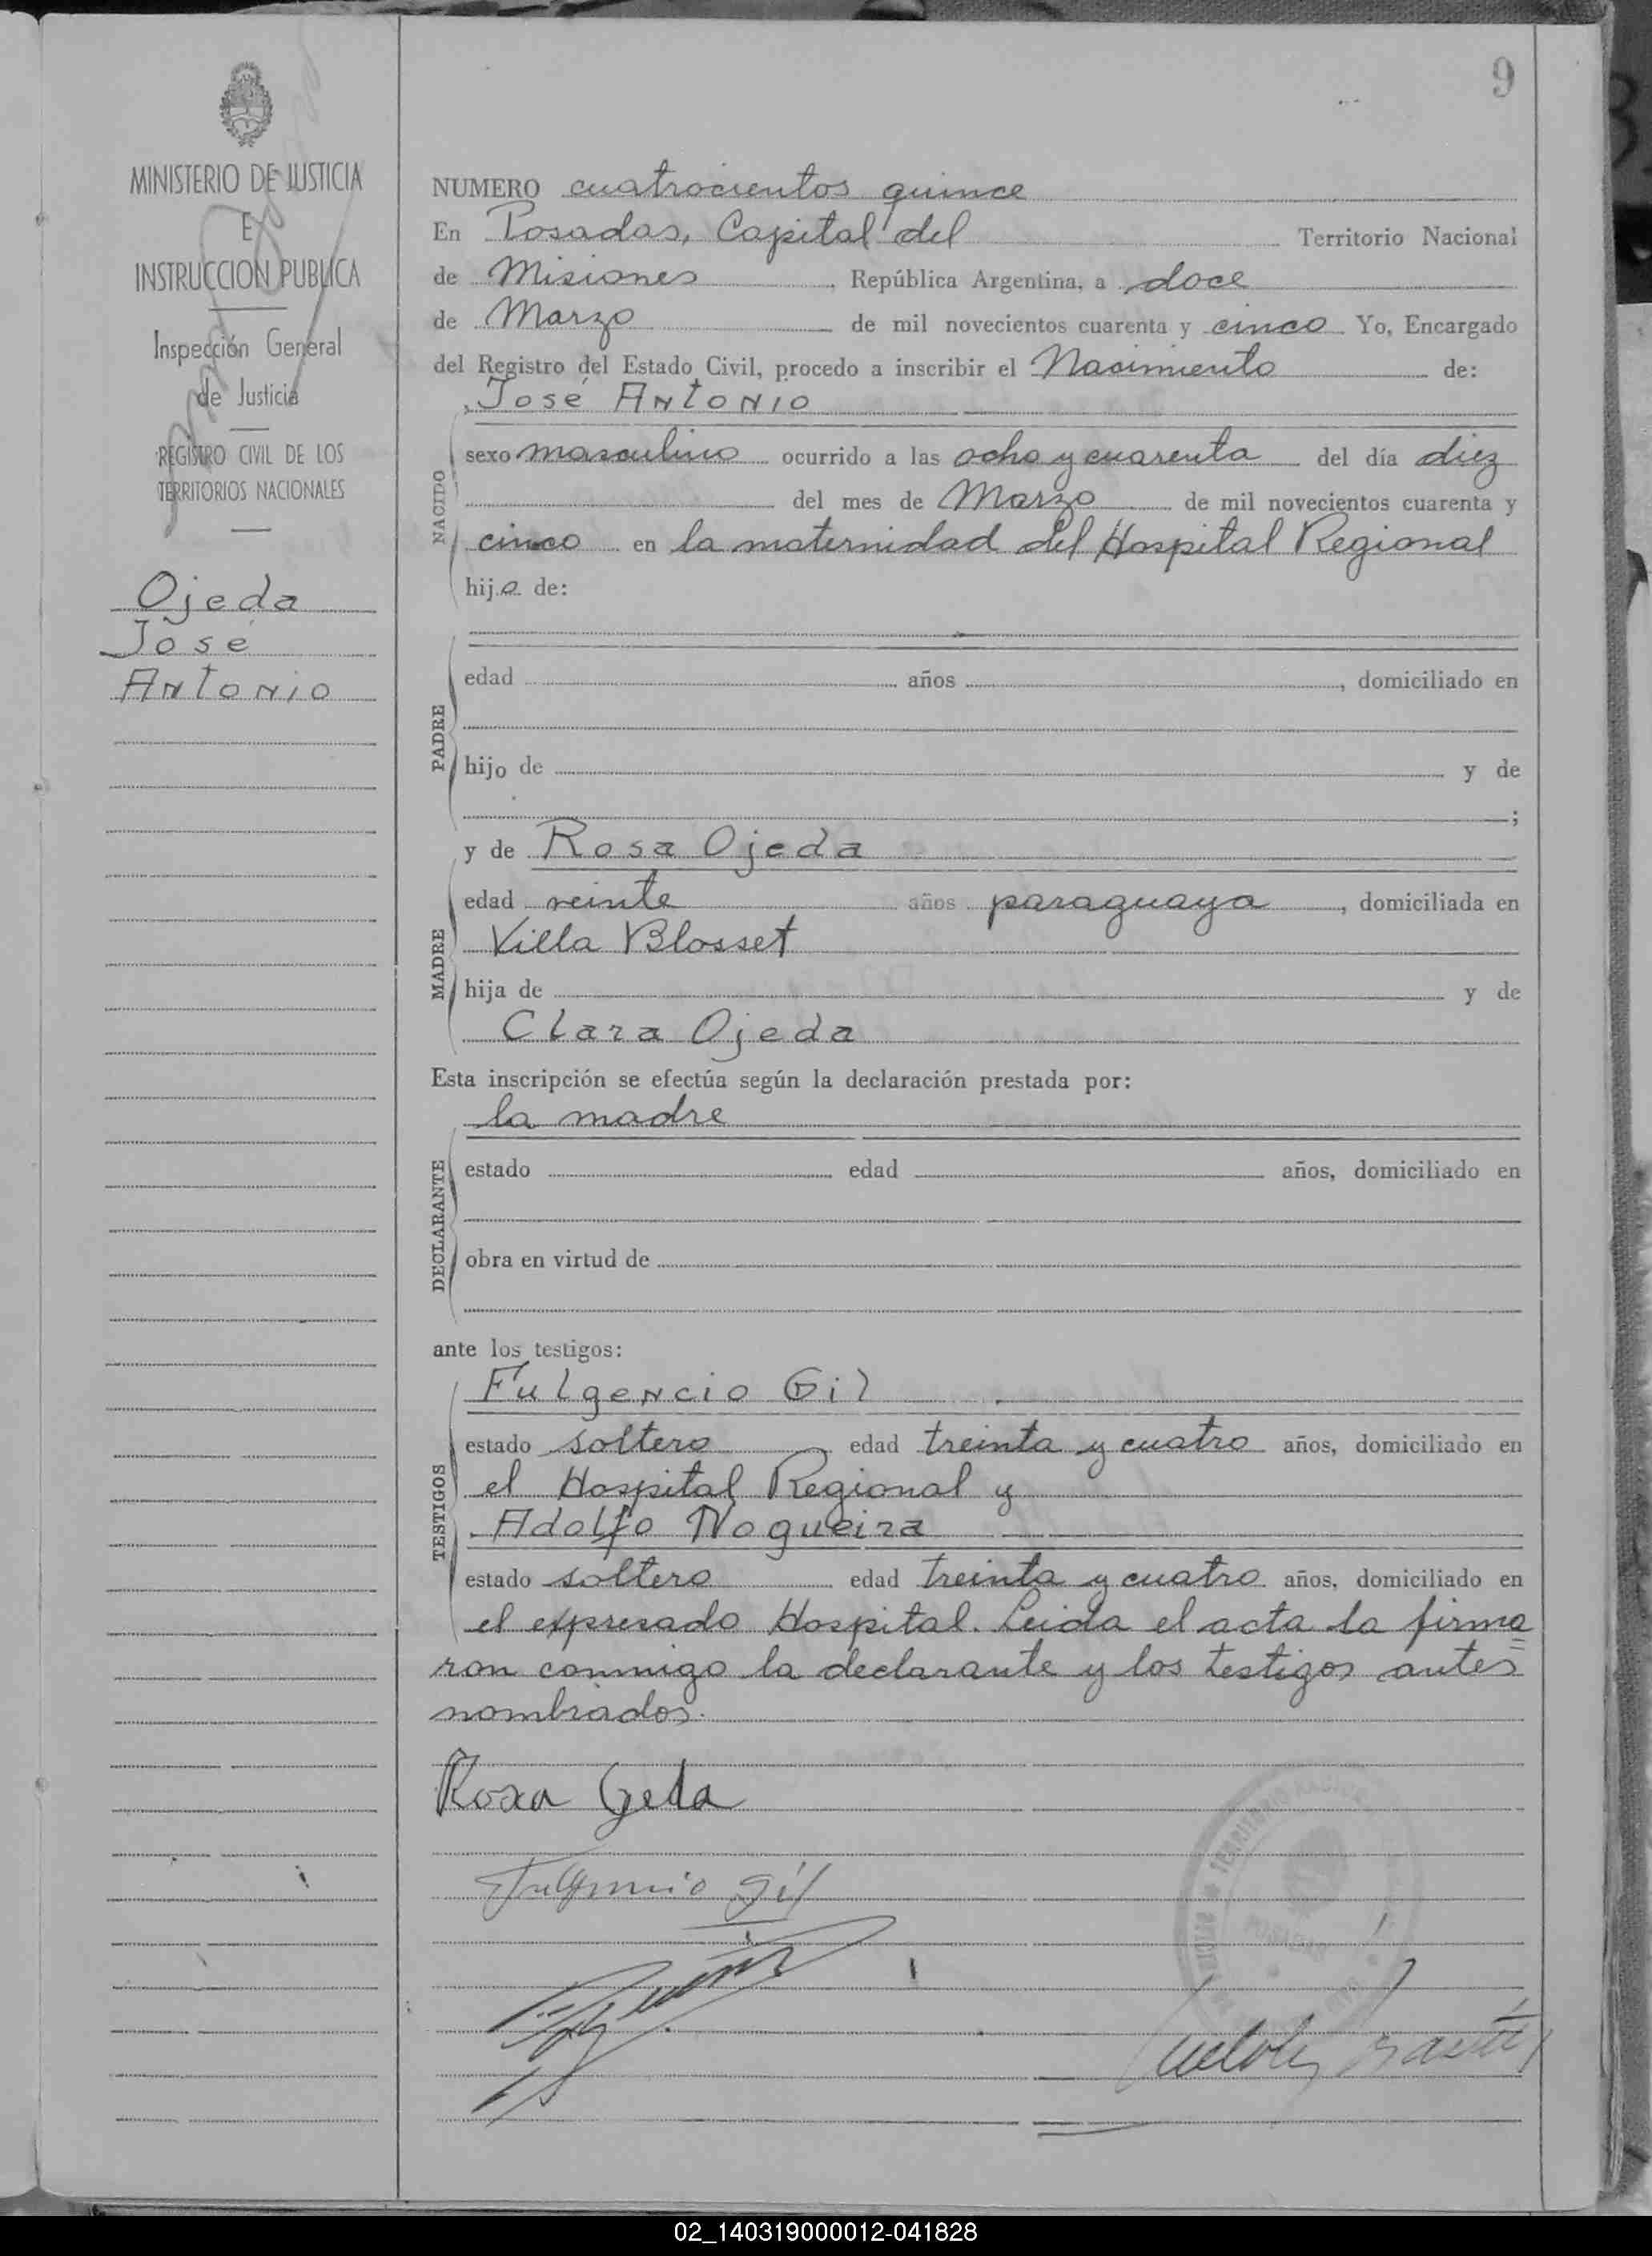 9
MINISTERIO DE JUSTICIA
E
INSTRUCCION PUBLICA
Inspección General
de Justicia
REGISTRO CIVIL DE LOS
TERRITORIOS NACIONALES
Ojeda
José
Antonio
NUMERO cuatrocientos quince
En Posadas, Capital del Territorio Nacional
de Misiones, República Argentina, a doce
de Marzo de mil novecientos cuarenta y cinco Yo, Encargado
del Registro del Estado Civil, procedo a inscribir el Nacimiento de:
José Antonio
NACIDO
sexo masculino ocurrido a las ocho y cuarenta del día diez
del mes de Marzo de mil novecientos cuarenta y
cinco en la maternidad del Hospital Regional
hijo de:
PADRE
edad años , domiciliado en
hijo de y de
;
y de Rosa Ojeda
MADRE
edad veinte años paraguaya , domiciliada en
Villa Blosset
hija de y de
Clara Ojeda
Esta inscripción se efectúa según la declaración prestada por:
la madre
DECLARANTE
estado edad años, domiciliado en
obra en virtud de
ante los testigos:
Fulgencio Gil
TESTIGOS
estado soltero edad treinta y cuatro años, domiciliado en
el Hospital Regional y
Adolfo Nogueira
estado soltero edad treinta y cuatro años, domiciliado en
el expresado Hospital. Leida el acta la firma=
ron conmigo la declarante y los testigos antes
nombrados.
Rosa Ojeda
Fulgencio Gil
TERRITORIO NACIONAL
POSADAS
02_140319000012-041828